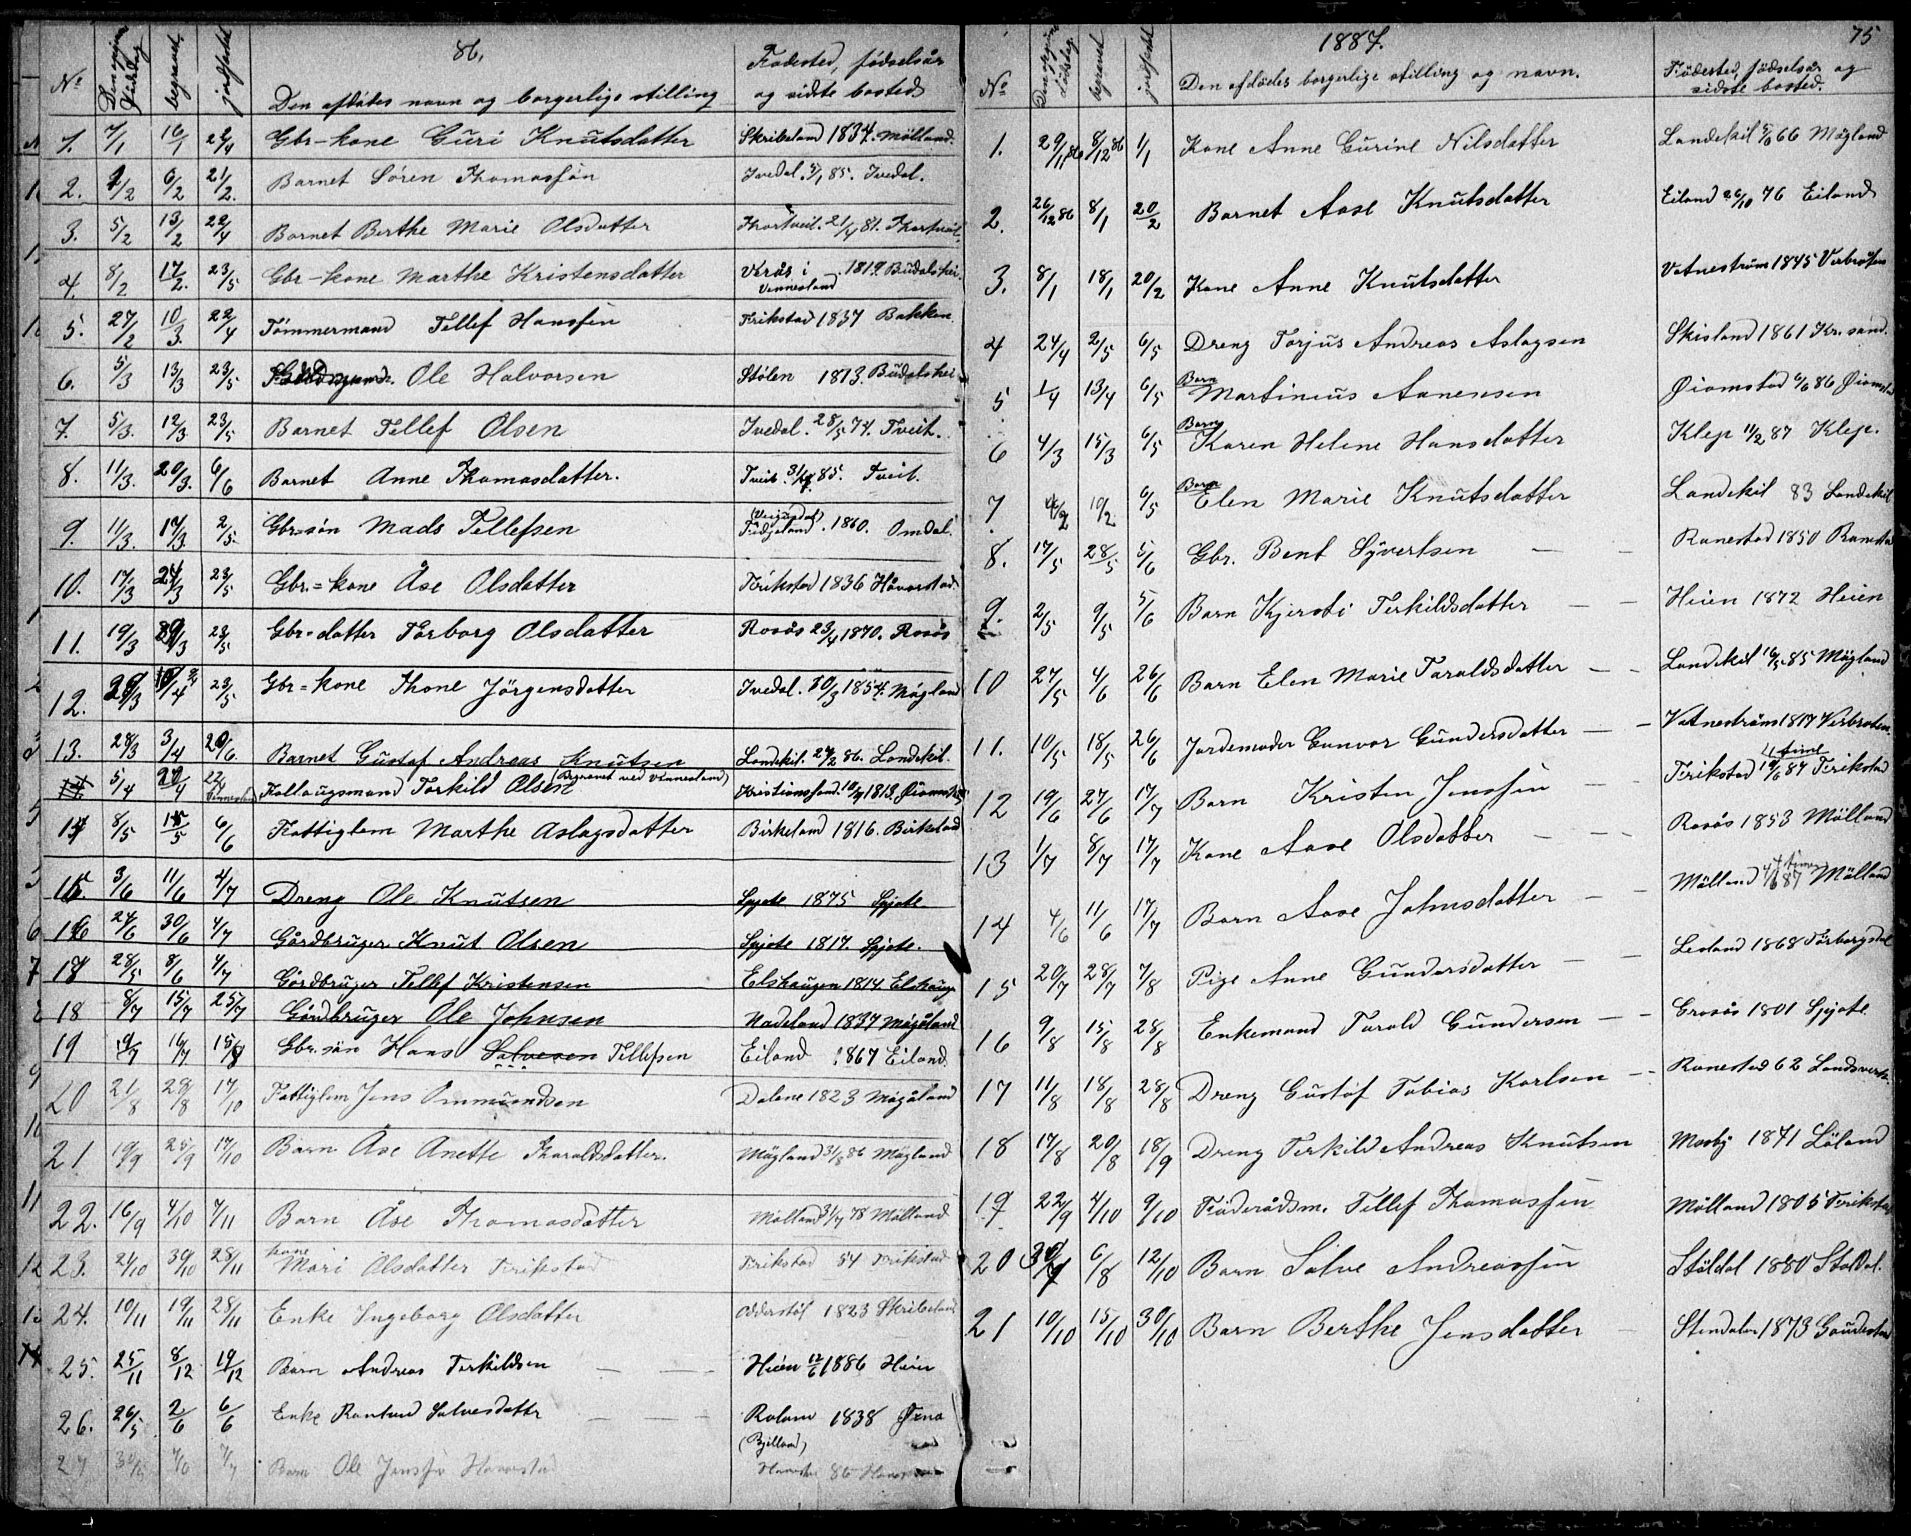 86.
No Den begravet jordfæstet Den afdödes navn og borgerlige stilling Födested, födselsår og sidste bosted
1. 7/1 16/1 26/4 Gbr-kone Guri Knutsdatter Skribeland 1834. Mölland.
2. 2/2 6/2 21/2. Barnet Sören Thomassön Ivedal. 85. Ivedal.
3. 5/2 13/2 22/4 Barnet Berthe Marie Olsdatter 21/4 81.
4. 8/2 17/2. 23/5 Gbr-kone Marthe Kristensdatter Verås i Vennesland 1819.
5. 27/2 10/3. 22/4 Tömmermand Tellef Hansson Kirikstad 1837 Bakken
6. 5/3 13/3 23/5 Ole Halvorsen Stölen 1813.
7. 5/3. 12/3 23/5 Barnet Tellef Olsen Ivedal. 28/5 74. Tveit.
8. 11/3. 20/3. 6/6 Barnet Anne Thomasdatter. Tveit. 85. Tveit.
9. 11/3. 17/3. 2/5. Gbr.sön Mads Tellefsen Fidjeland. 1860. Omdal.
10. 17/3 24/3 23/5 Gbr.=kone Åse Olsdatter Kirikstad 1836 Håverstad.
11. 19/3 23/5 Gbr=datter Torborg Olsdatter Rosås 23/4 1870. Rosås
12. 23/5 Gbr=kone Thone Jörgensdatter Ivedal. 30/3 1854. Mögland
13. 28/3 3/4 20/6. Barnet Gustaf Andreas Knutsen Landekil. 24/2 86. Landekil.
5/4 Torkild Olsen (Begravet ved Vennesland) Kristiansand. 1813.
14 8/5 15/5 6/6 Fattiglem Marthe Aslagsdatter Birkeland 1816. Birkeland
15. 3/6 11/6 4/7 Dreng Ole Knutsen Spjote 1875 Spjote
16 24/6 30/6 4/7 Gårdbruger Knut Olsen Spjote 1817. Spjote.
17 28/5 8/6 4/7 Gårdbruger Tellef Kristensen Elshaugen 1814 Elshaugen
18 8/7 15/7 25/7 Gårdbruger Ole Johnsen Nadeland 1837 Mögåland
19 9/7 16/7. 15/8 Gbr.sön Hans Salvesen Tellefsen Eiland 1867 Eiland.
20 21/8 28/8 17/10 Fattiglem Jens Ommundsen Dalene 1823 Mögåland
21 19/9 25/9 17/10 Barn Åse Anette Tharaldsdatter. Mögland 31/8 86 Mögland
22. 16/9 4/10 7/11 Barn Åse Thomasdatter Mölland 31/7 78 Mölland
23. 24/10 30/10 28/11 kone Mari Olsdatter Kirikstad Kirikstad 54 Kirikstad
24. 10/11 19/11 28/11 Enke Ingeborg Olsdatter Odderstöl 1823 Skribeland
25. 25/11 8/12 19/12 Barn Andreas Terkildsen — — Heien 12/6 1886 Heien
26. 26/5 2/6 6/6 Enke Salvesdatter — — Roland 1838
(Bjelland)
27 30/ Barn Ole Jenssön Haverstad 86
1887.
75
No begravet jordfæstet Den afdödes borgerlige stilling og navn. Födested, födselsår og sidste bosted.
1. 29/11 86 8/12 86 1/1 Kone Anne Gurine Nilsdatter Landekil 66 Mögland
2. 26/12 86 8/1 20/2 Barnet Aase Knutsdatter Eiland 26/10 76 Eiland
3. 8/1 18/1 20/2 Kone Anne Knutsdatter Vatneström 1845 Verbråten
4 24/4 2/5 6/5 Dreng Torjus Andreas Aslagsen Skisland 1861 Kr.sand.
5 1/4 13/4 6/5 Barn Martinius Aanensen Öiomstad 6/6 86 Öiomstad
6 4/3 15/3 6/5 Barn Karen Helene Hansdatter Klep 11/2 87 Klep.
7 4/2 10/2 6/5 Barn Elen Marie Knutsdatter Landekil 83 Landekil
8. 17/5 28/5 5/6 Gbr. Bent Syvertsen — — Ranestad 1850 Ranestad
9. 2/5 9/5 5/6 Barn Kjersti Terkildsdatter — — Heien 1872 Heien
10 27/5 4/6 26/6 Barn Elen Marie Taraldsdatter — — Landekil 16/5 85 Mögland
11. 10/5 18/5 26/6 Jordemoder Gunvor Gundersdatter — — Vatneström 1817 Verbraten
12 19/6 27/6 17/7 Barn Kristen Jenssön — Kirikstad 19/6 87 Kirikstad
13 1/7 8/7 17/7 Kone Aase Olsdatter — — Rosås 1853 Mölland
14 4/6 11/6 17/7 Barn Aase Johnsdatter — — Mölland 4/6 87 Mölland
15 20/7 28/7 7/8 Pige Anne Gundersdatter — — Lesland 1868
16 9/8 15/8 28/8 Enkemand Tarald Gundersen — — Grosås 1801 Spjote
17 11/8 18/8 28/8 Dreng Gustaf Tobias Karlsen — — Ranestad 62
18 17/8 20/8 18/9 Dreng Terkild Andreas Knutsen Mosby 1871 Löland
19 22/9 4/10 9/10 Föderådsm. Tellef Thomassön Mölland 1805 Kirikstad
20 6/8 12/10 Barn Salve Andreassön Stöldal 1880 Stöldal.
21 10/10 15/10 30/10 Barn Berthe Jensdatter — Stendalen 1873